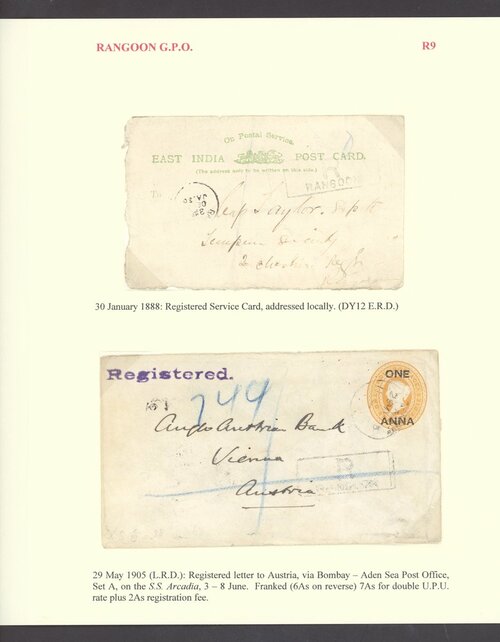 RANGOON G.P.O. R9
On Postal Service.
EAST INDIA POST CARD.
(The address only to be written on this side)
R
RANGOON
To
JA.30
30 January 1888: Registered Service Card, addressed locally. (DY12 E.R.D.)
Registered.
ONE
ANNA
249
Anglo Austrian Bank
Vienna
R
Austria
29 May 1905 (L.R.D.): Registered letter to Austria, via Bombay – Aden Sea Post Office,
Set A, on the S.S. Arcadia, 3 – 8 June. Franked (6As on reverse) 7As for double U.P.U.
rate plus 2As registration fee.